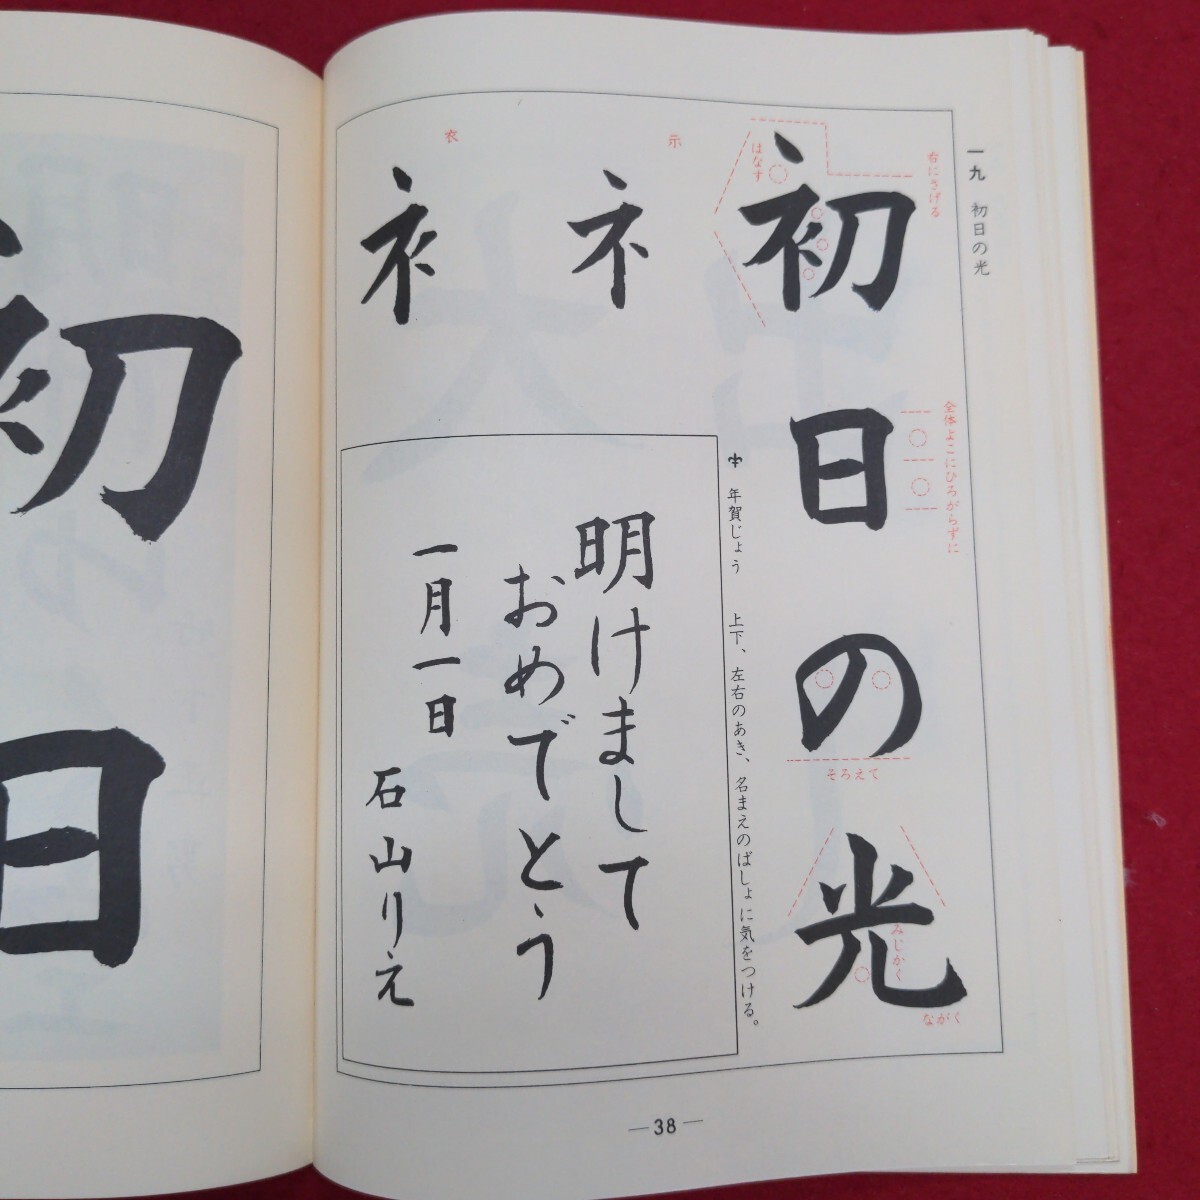 一九 初日の光
初日の光
右にさげる
はなす
全体よこにひろがらずに
そろえて
みじかく
ながく
示
ネ
衣
衤
年賀じょう 上下、左右のあき、名まえのばしょに気をつける。
明けまして
おめでとう
一月一日
石山りえ
—38—
初日